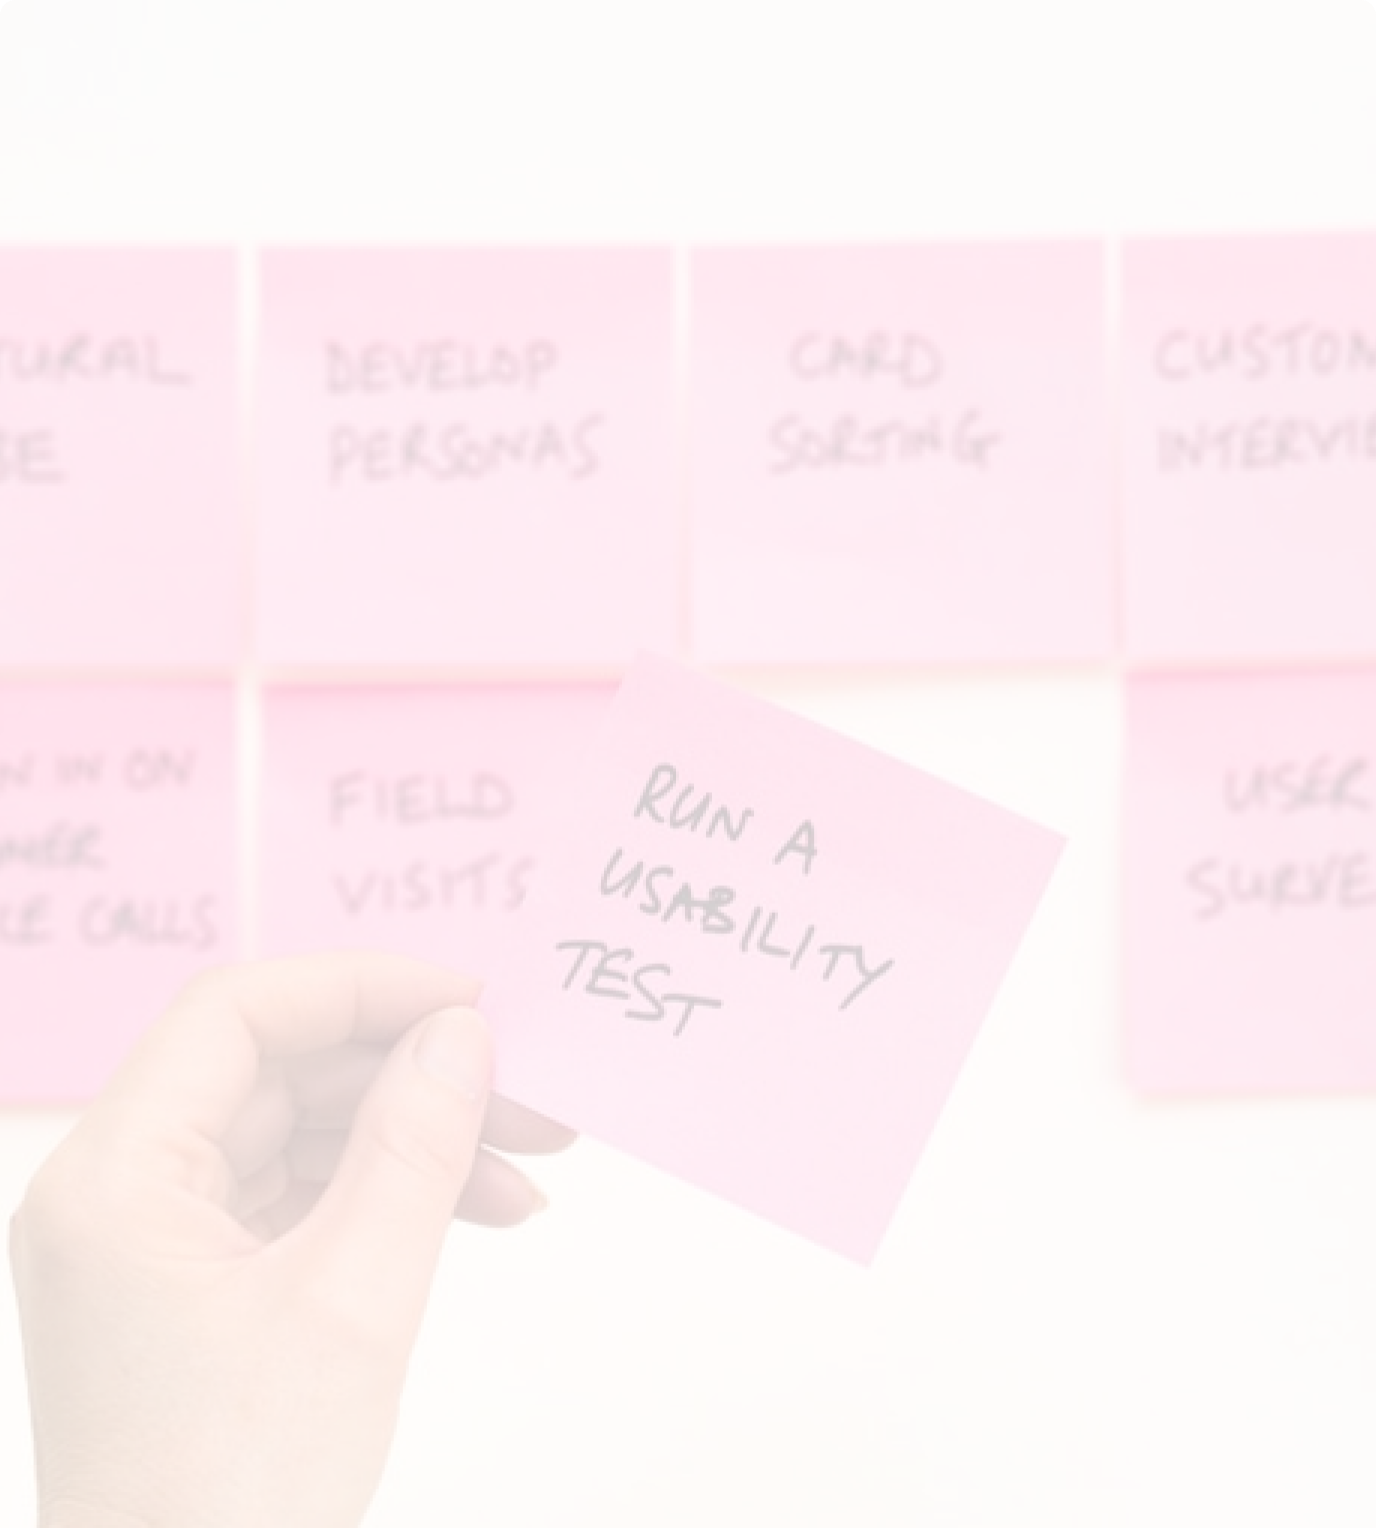 TURAL
SE
DEVELOP
PERSONAS
CARD
SORTING
CUSTOM
INTERVIE
N IN ON
MER
CALLS
FIELD
VISITS
RUN A
USABILITY
TEST
USER
SURVE